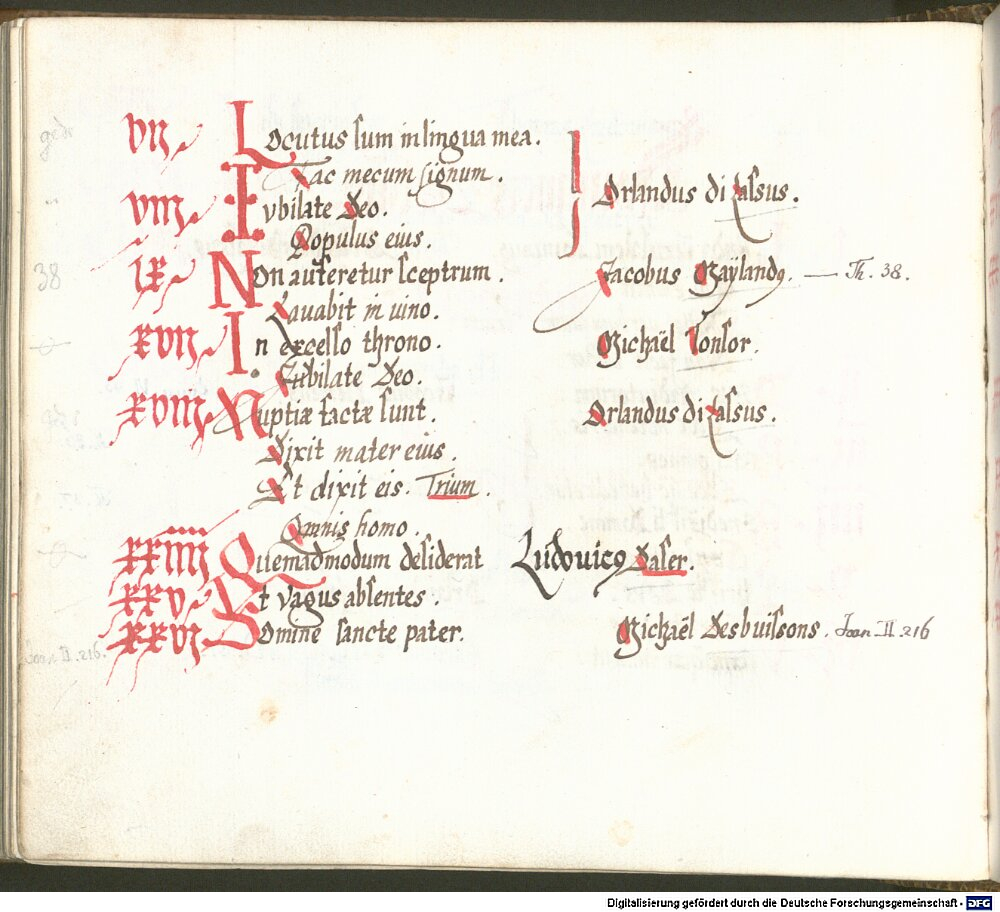 VII Locutus sum in lingua mea.
Fac mecum signum. Orlandus di Lassus.
VIII Iubilate Deo.
Populus eius.
IX Non auferetur sceptrum. Jacobus Maÿland9. — Th. 38.
38
Lauabit in uino.
XVII In excelso throno. Michaël Tonsor.
Jubilate Deo.
XVIII Nuptiæ factæ sunt. Orlandus di Lassus.
Dixit mater eius.
Et dixit eis. Trium.
Omnis homo.
XXIIII Quemadmodum desiderat Ludouic9 Daser.
XXV Et vagus absentes.
XXVI Domine sancte pater. Michaël Desbuissons. Joan. II 216
Digitalisierung gefördert durch die Deutsche Forschungsgemeinschaft - DFG